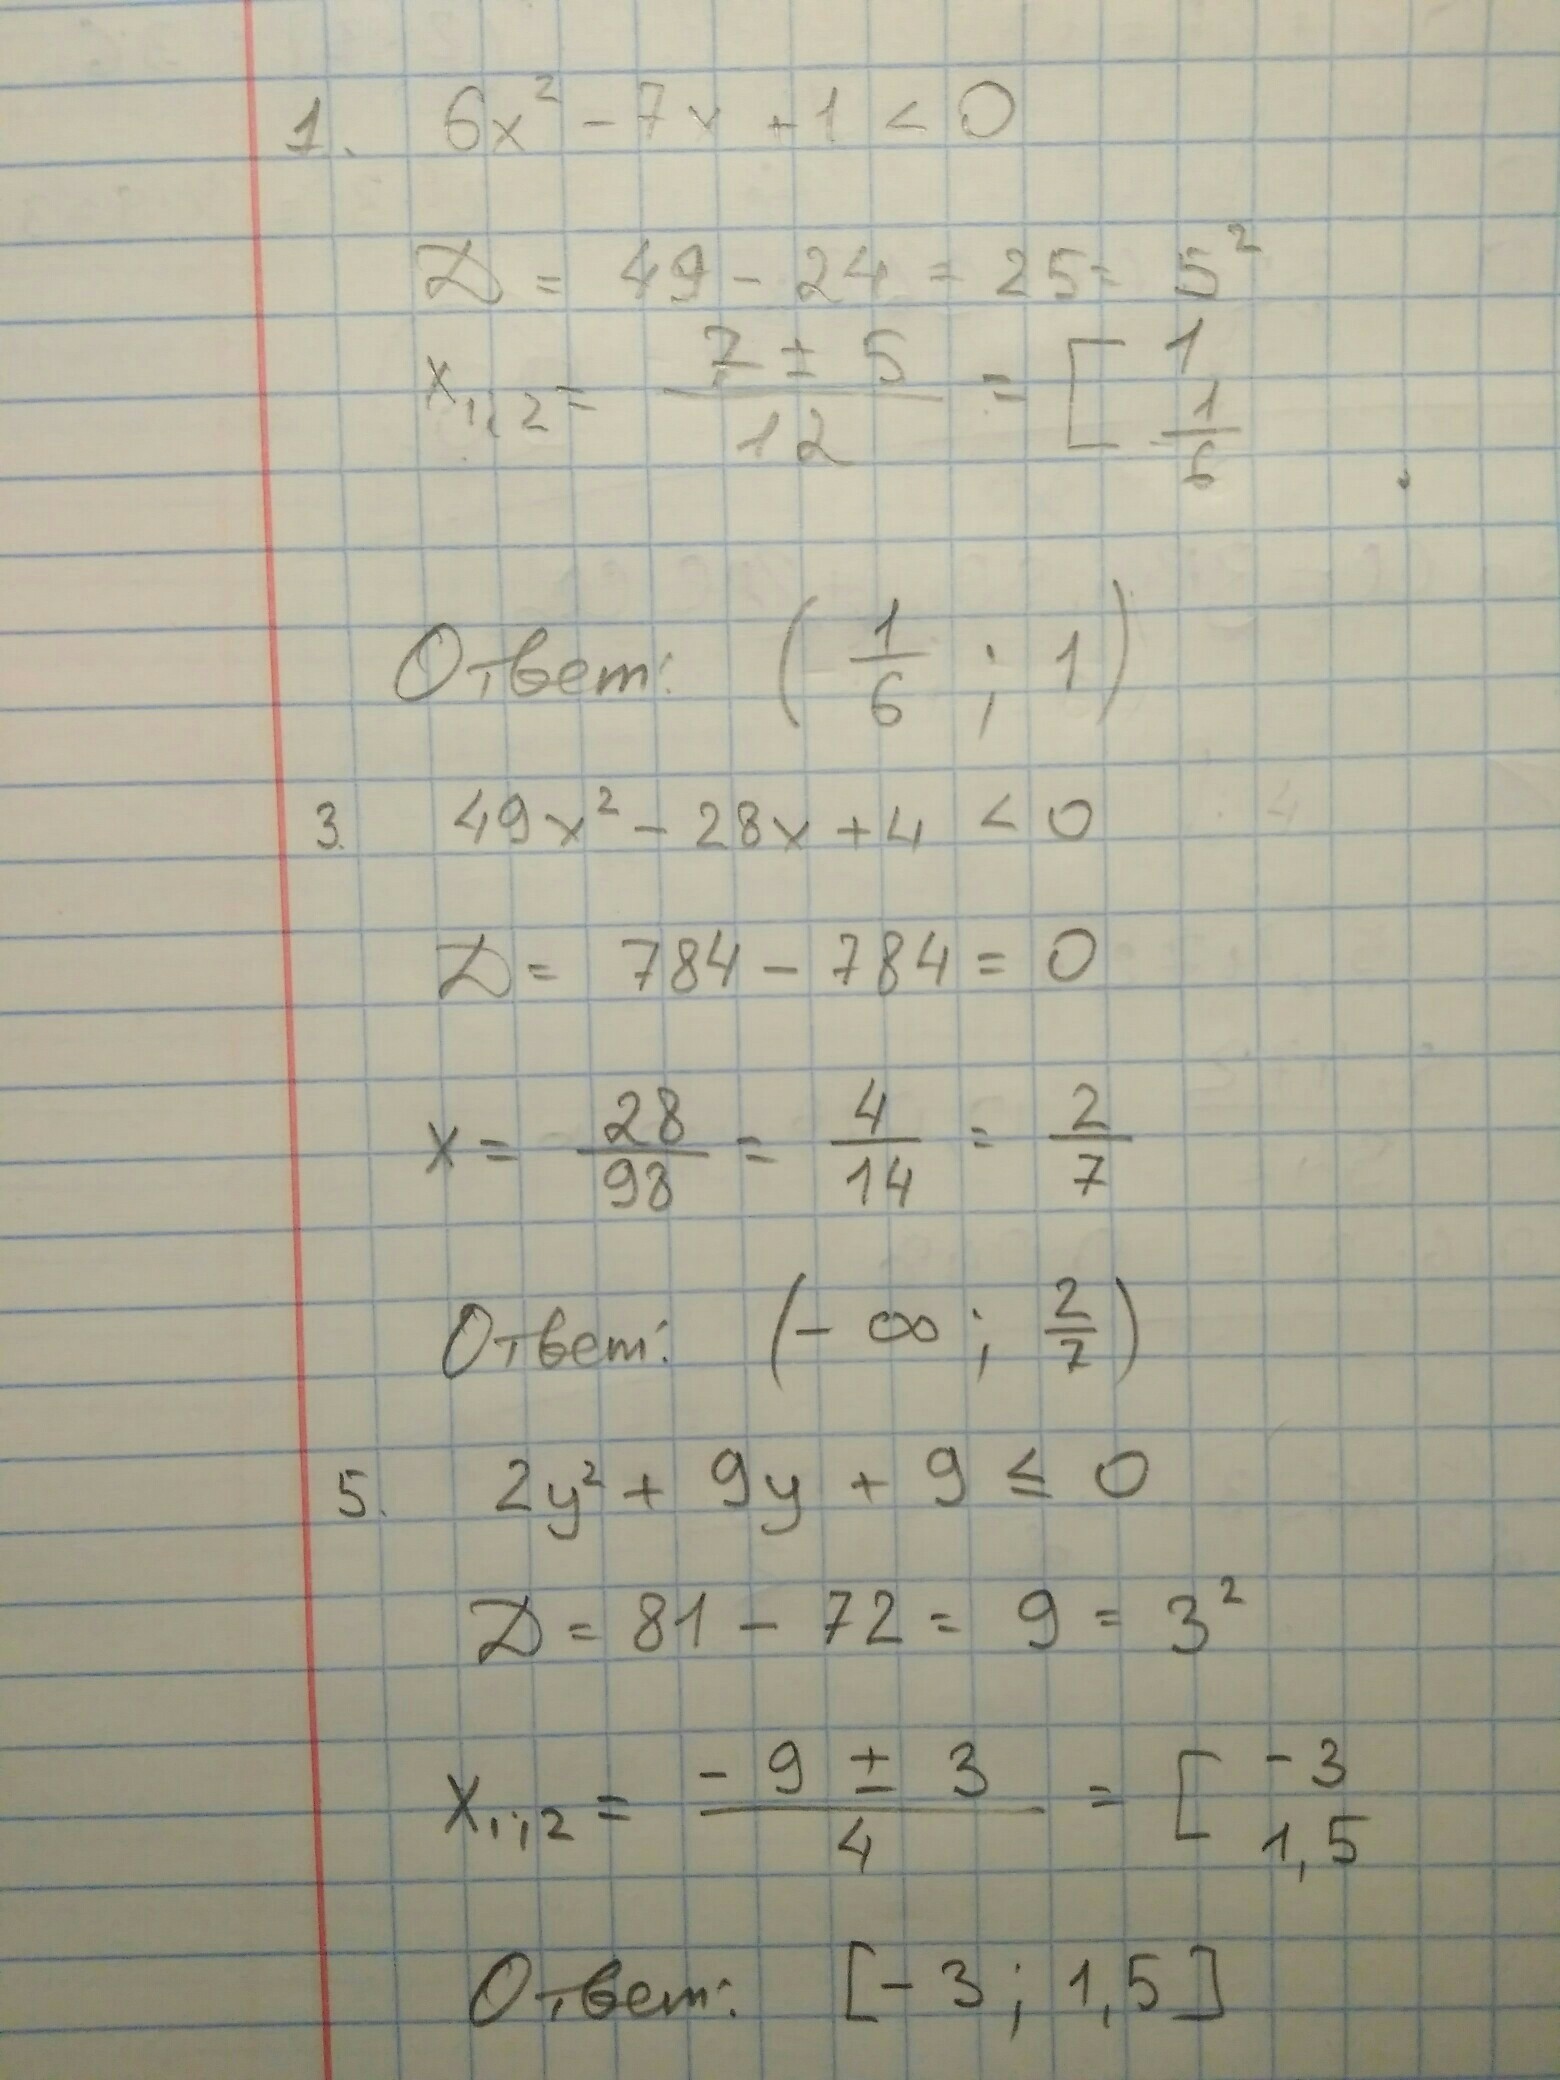 1. 6x² - 7x + 1 < 0
D = 49 - 24 = 25 = 5²
x₁,₂ = (7 ± 5)/12 = [ 1, 1/6
Ответ: (1/6 ; 1)
3. 49x² - 28x + 4 < 0
D = 784 - 784 = 0
x = 28/98 = 4/14 = 2/7
Ответ: (-∞ ; 2/7)
5. 2y² + 9y + 9 ≤ 0
D = 81 - 72 = 9 = 3²
x₁;₂ = (-9 ± 3)/4 = [ -3 1,5
Ответ: [-3 ; 1,5]